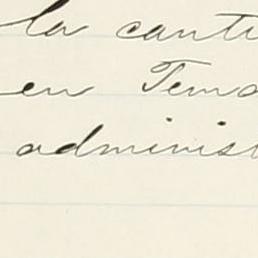 la canti
en Tema
administ